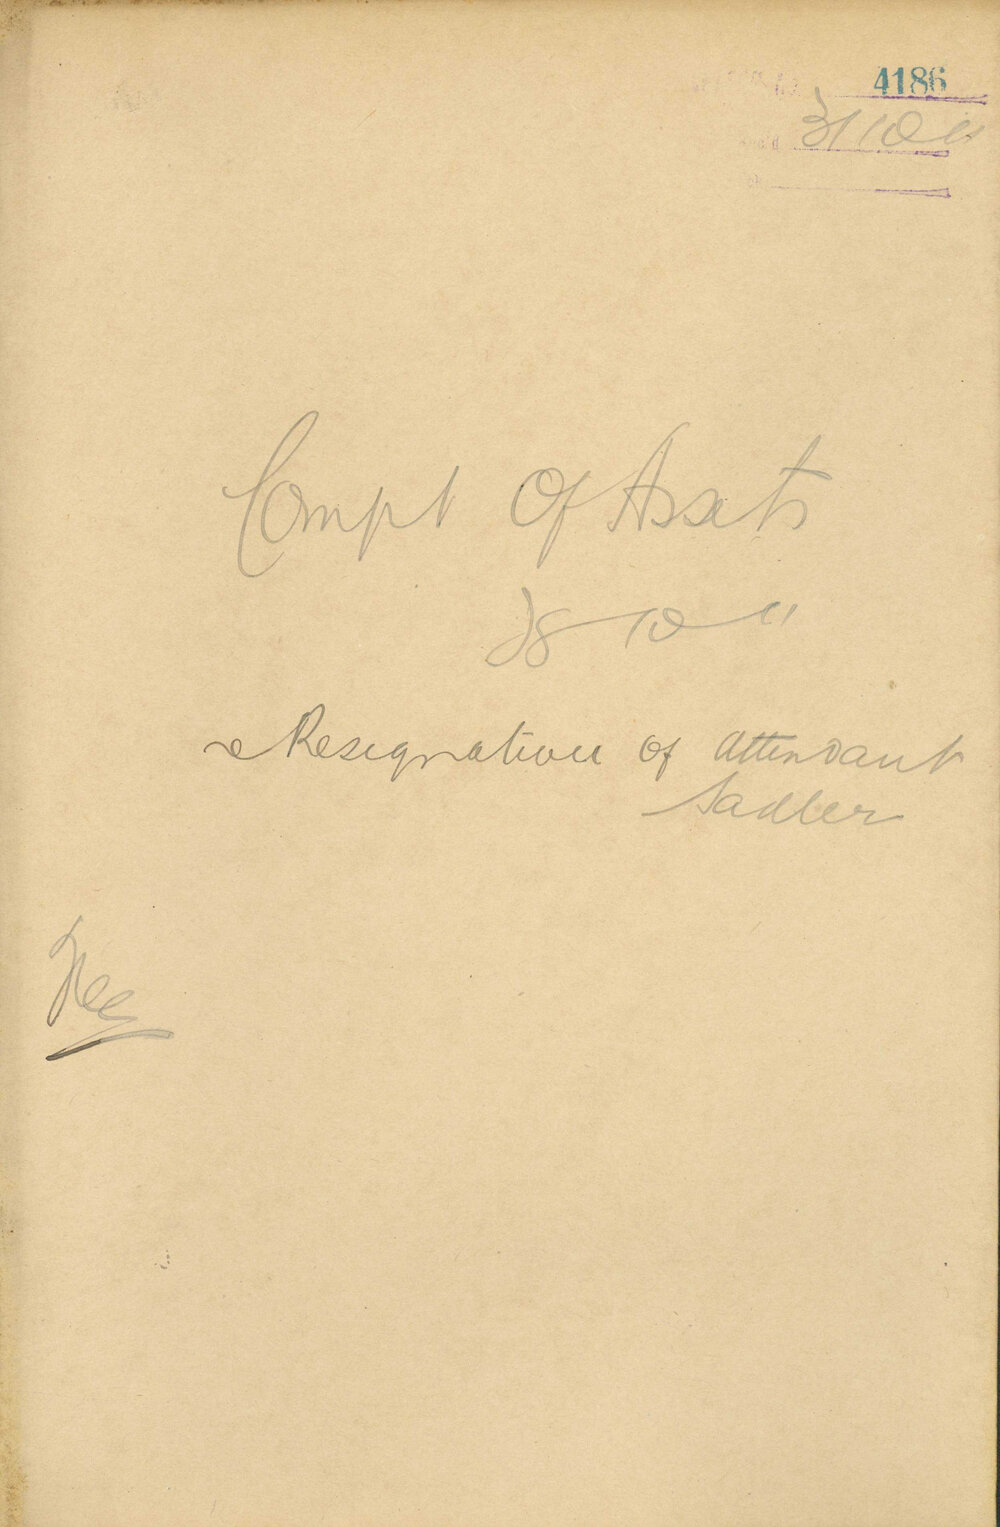 4186
31/10 11
Compt Of Assts
28 10 11
re Resignation of Attendant
Sadler